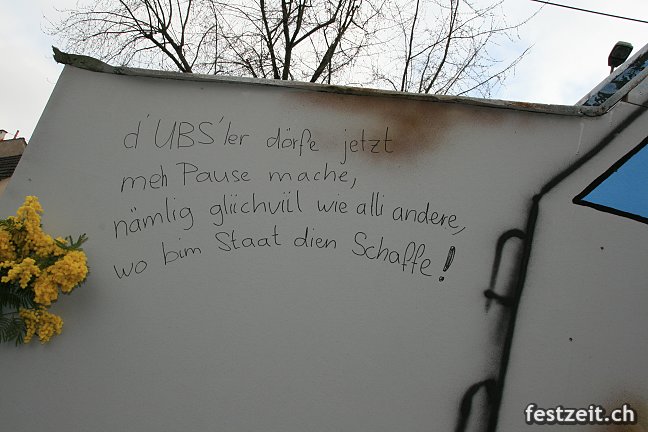 d'UBS'ler dörfe jetzt
meh Pause mache,
nämlig gliichviil wie alli andere,
wo bim Staat dien Schaffe!
festzeit.ch